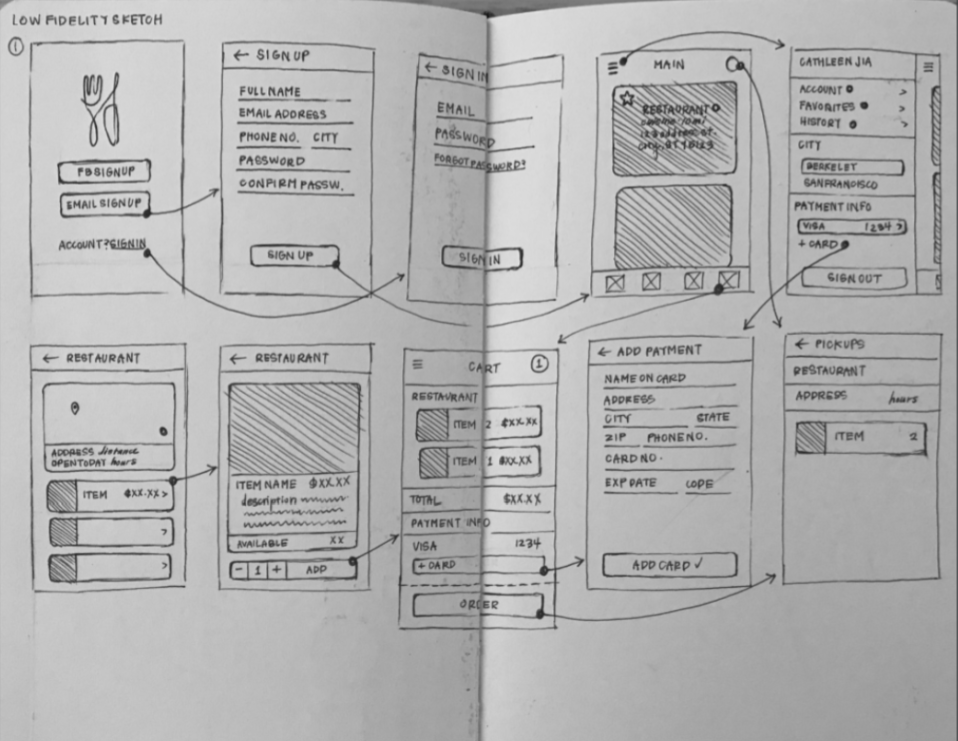 LOW FIDELITY SKETCH
1
FB SIGNUP
EMAIL SIGNUP
ACCOUNT? SIGNIN
← SIGNUP
FULL NAME
EMAIL ADDRESS
PHONE NO. CITY
PASSWORD
CONFIRM PASSW.
SIGN UP
← SIGN IN
EMAIL
PASSWORD
FORGOT PASSWORD?
SIGN IN
MAIN
RESTAURANT
CATHLEEN JIA
ACCOUNT >
FAVORITES >
HISTORY >
CITY
BERKELEY
SAN FRANCISCO
PAYMENT INFO
VISA 1234 >
+ CARD
SIGN OUT
← RESTAURANT
ADDRESS distance
OPEN TODAY hours
ITEM $XX.XX >
>
>
← RESTAURANT
ITEM NAME $XX.XX
description
AVAILABLE XX
- 1 + ADD
CART 1
RESTAURANT
ITEM 2 $XX.XX
ITEM 1 $XX.XX
TOTAL $XX.XX
PAYMENT INFO
VISA 1234
+ CARD
ORDER
← ADD PAYMENT
NAME ON CARD
ADDRESS
CITY STATE
ZIP PHONE NO.
CARD NO.
EXP DATE CODE
ADD CARD ✓
← PICKUPS
RESTAURANT
ADDRESS hours
ITEM 2